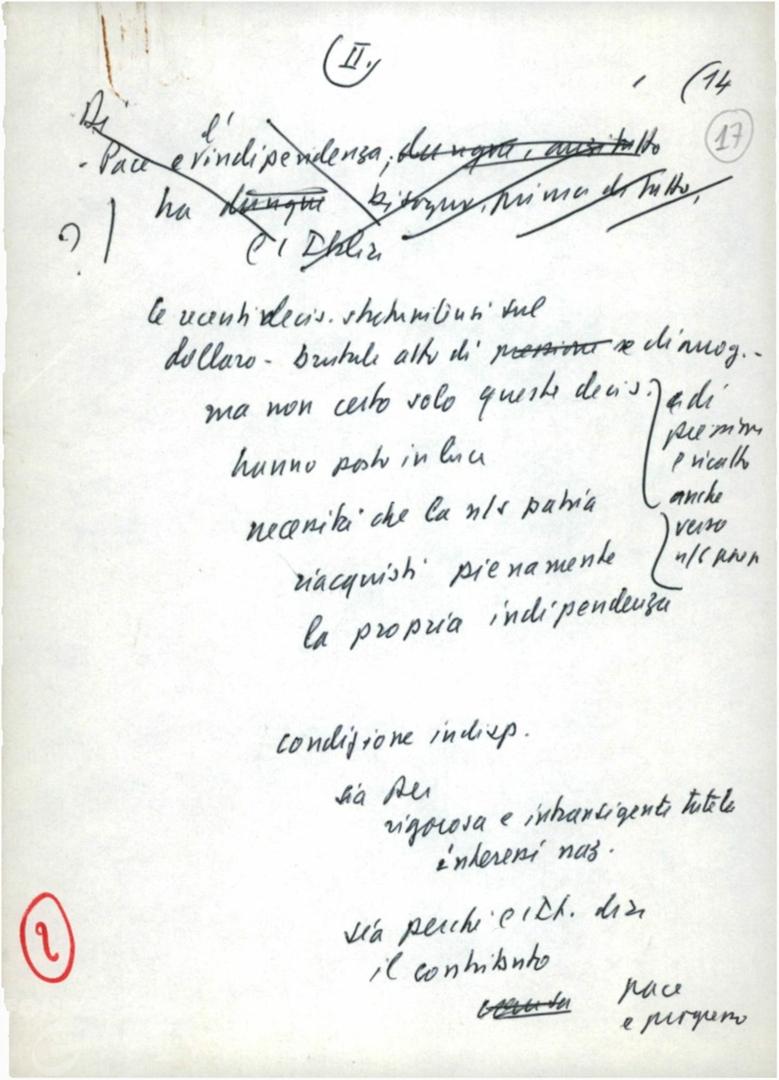 (II.)
(14
17
Di l'
- Pace e indipendenza, dunque, anzitutto
ha dunque bisogno, prima di tutto,
? | l'Italia
le recenti decis. statunitensi sul
dollaro - brutale atto di pressione e di arrog. -
ma non certo solo queste decis.
e di
pressione
e ricatto
anche
verso
hanno posto in luce
necessità che la n/s patria
riacquisti pienamente
la propria indipendenza
condizione indisp.
sia per
rigorosa e intransigente tutela
interessi naz.
sia perché l'It. dia
il contributo
pace
e progresso
2